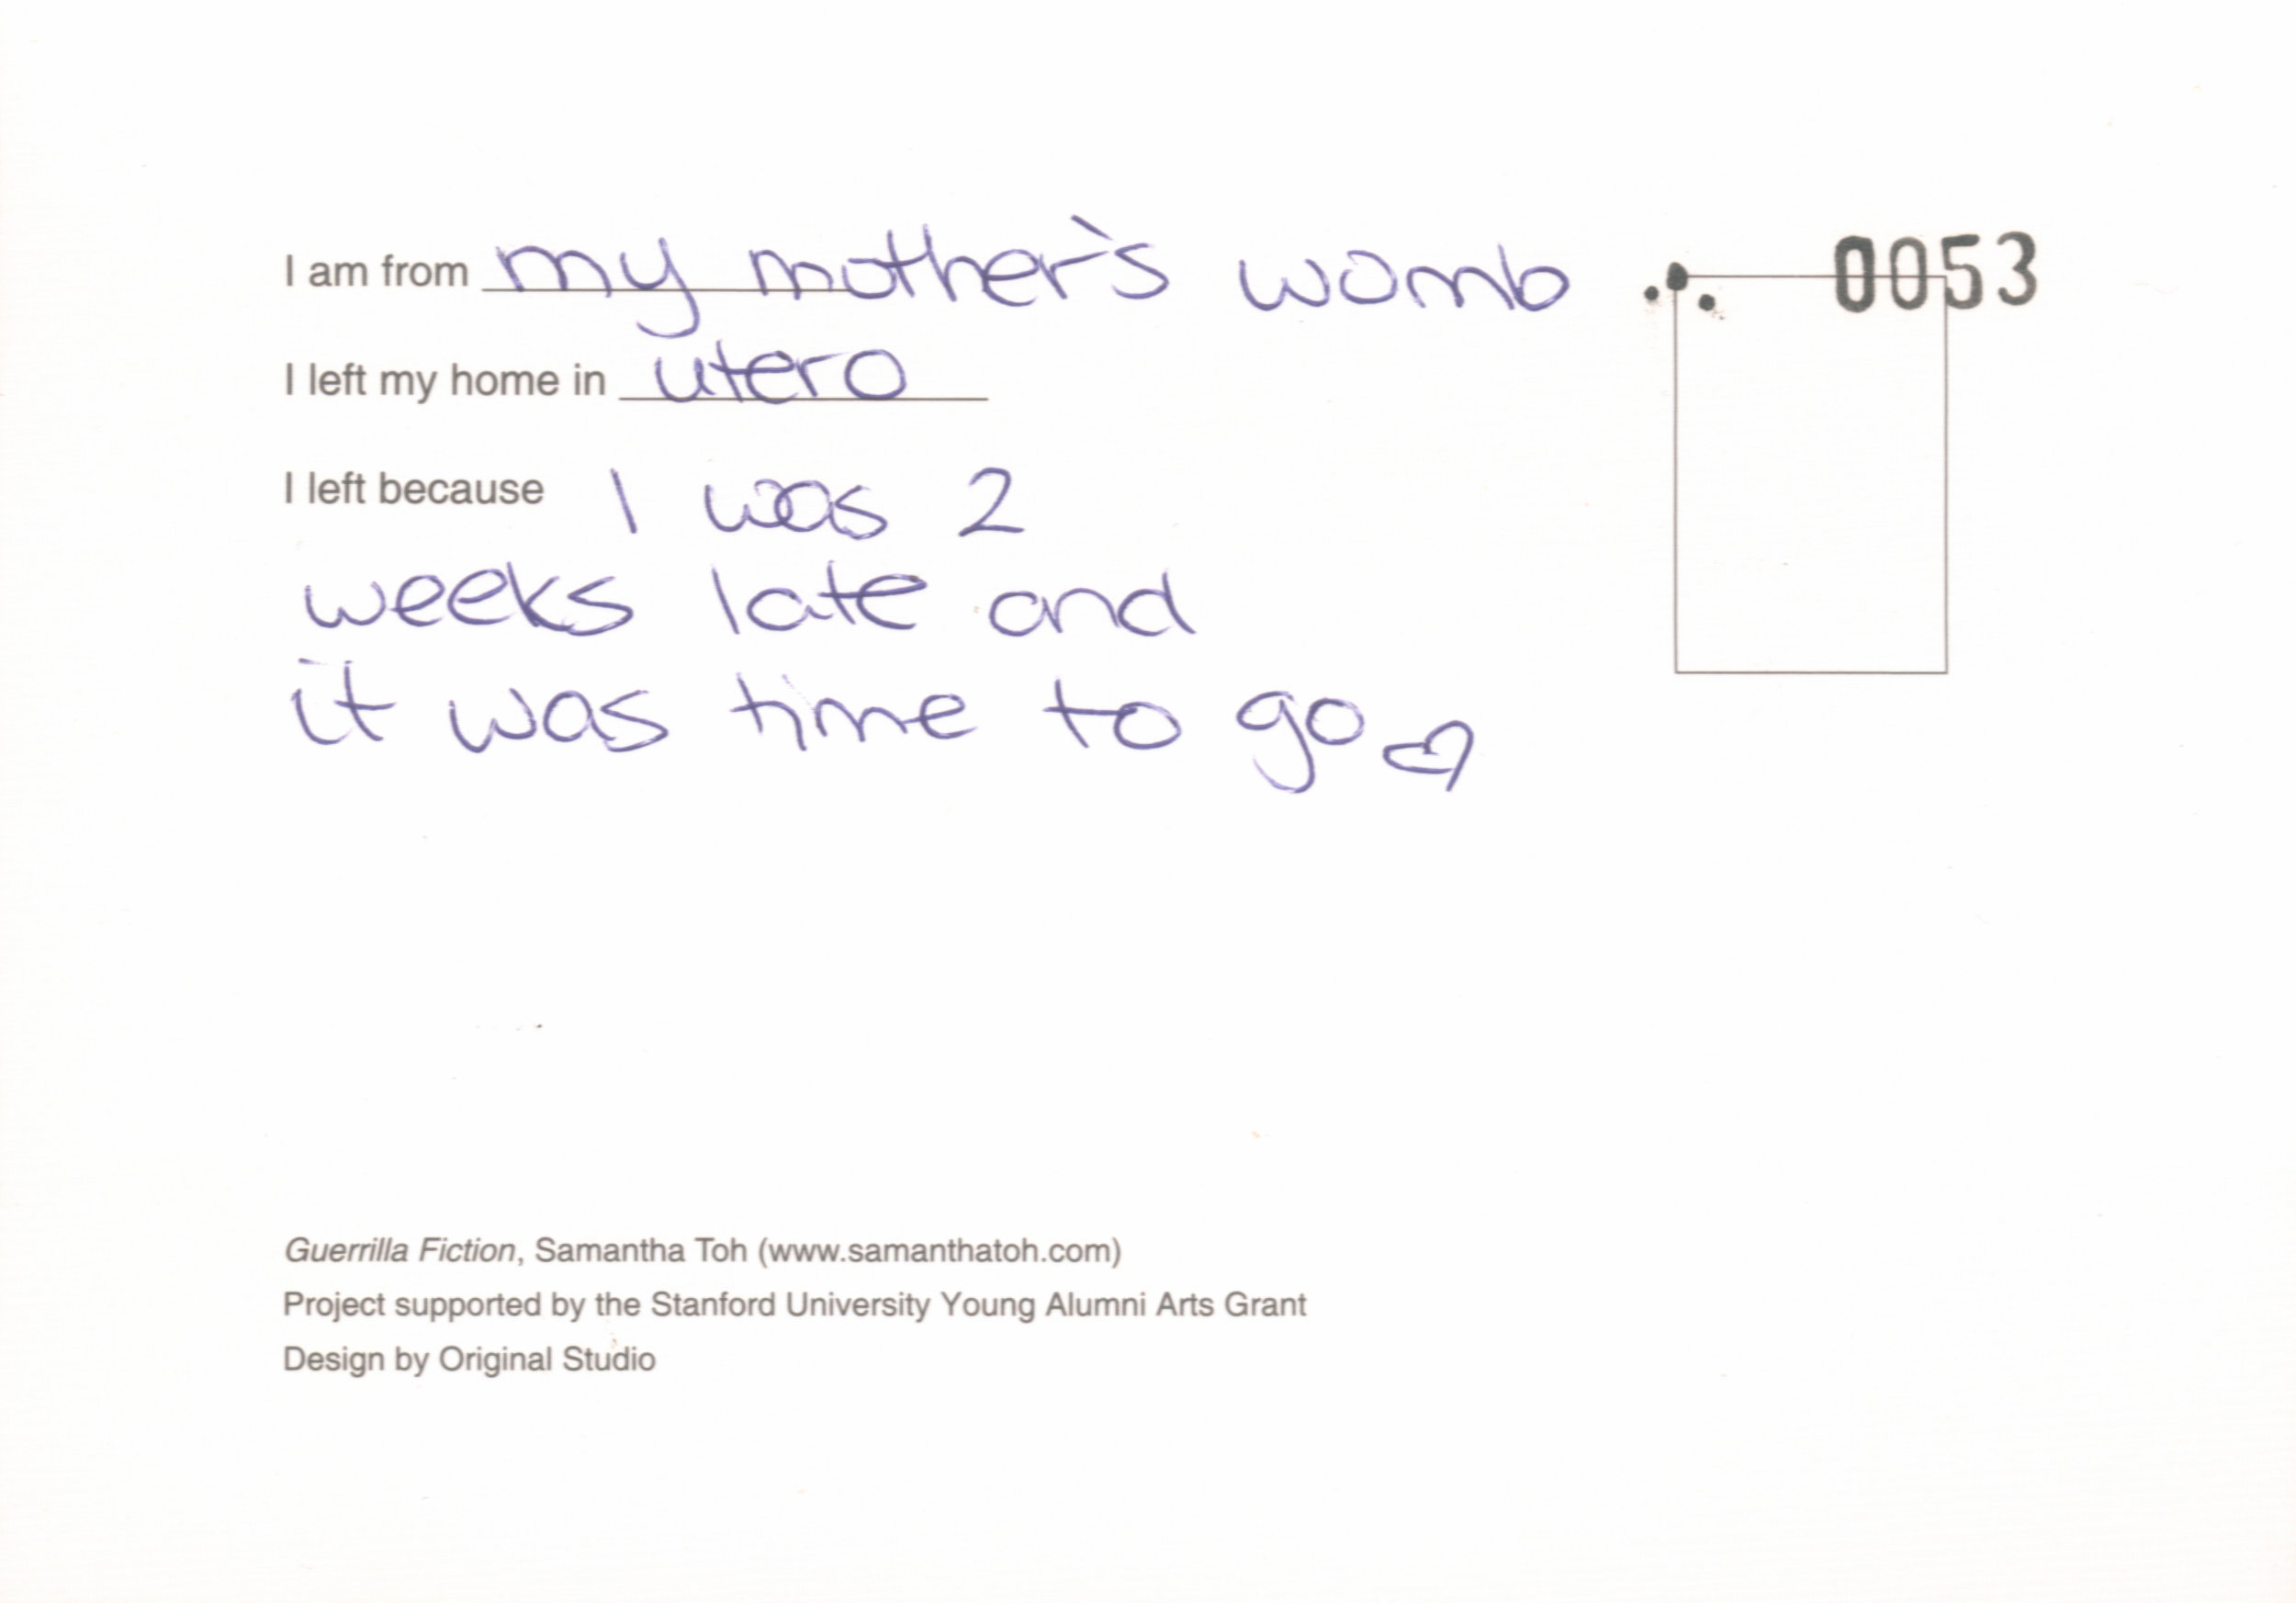 I am from my mother's womb
0053
I left my home in utero
I left because I was 2
weeks late and
it was time to go
Guerrilla Fiction, Samantha Toh (www.samanthatoh.com)
Project supported by the Stanford University Young Alumni Arts Grant
Design by Original Studio